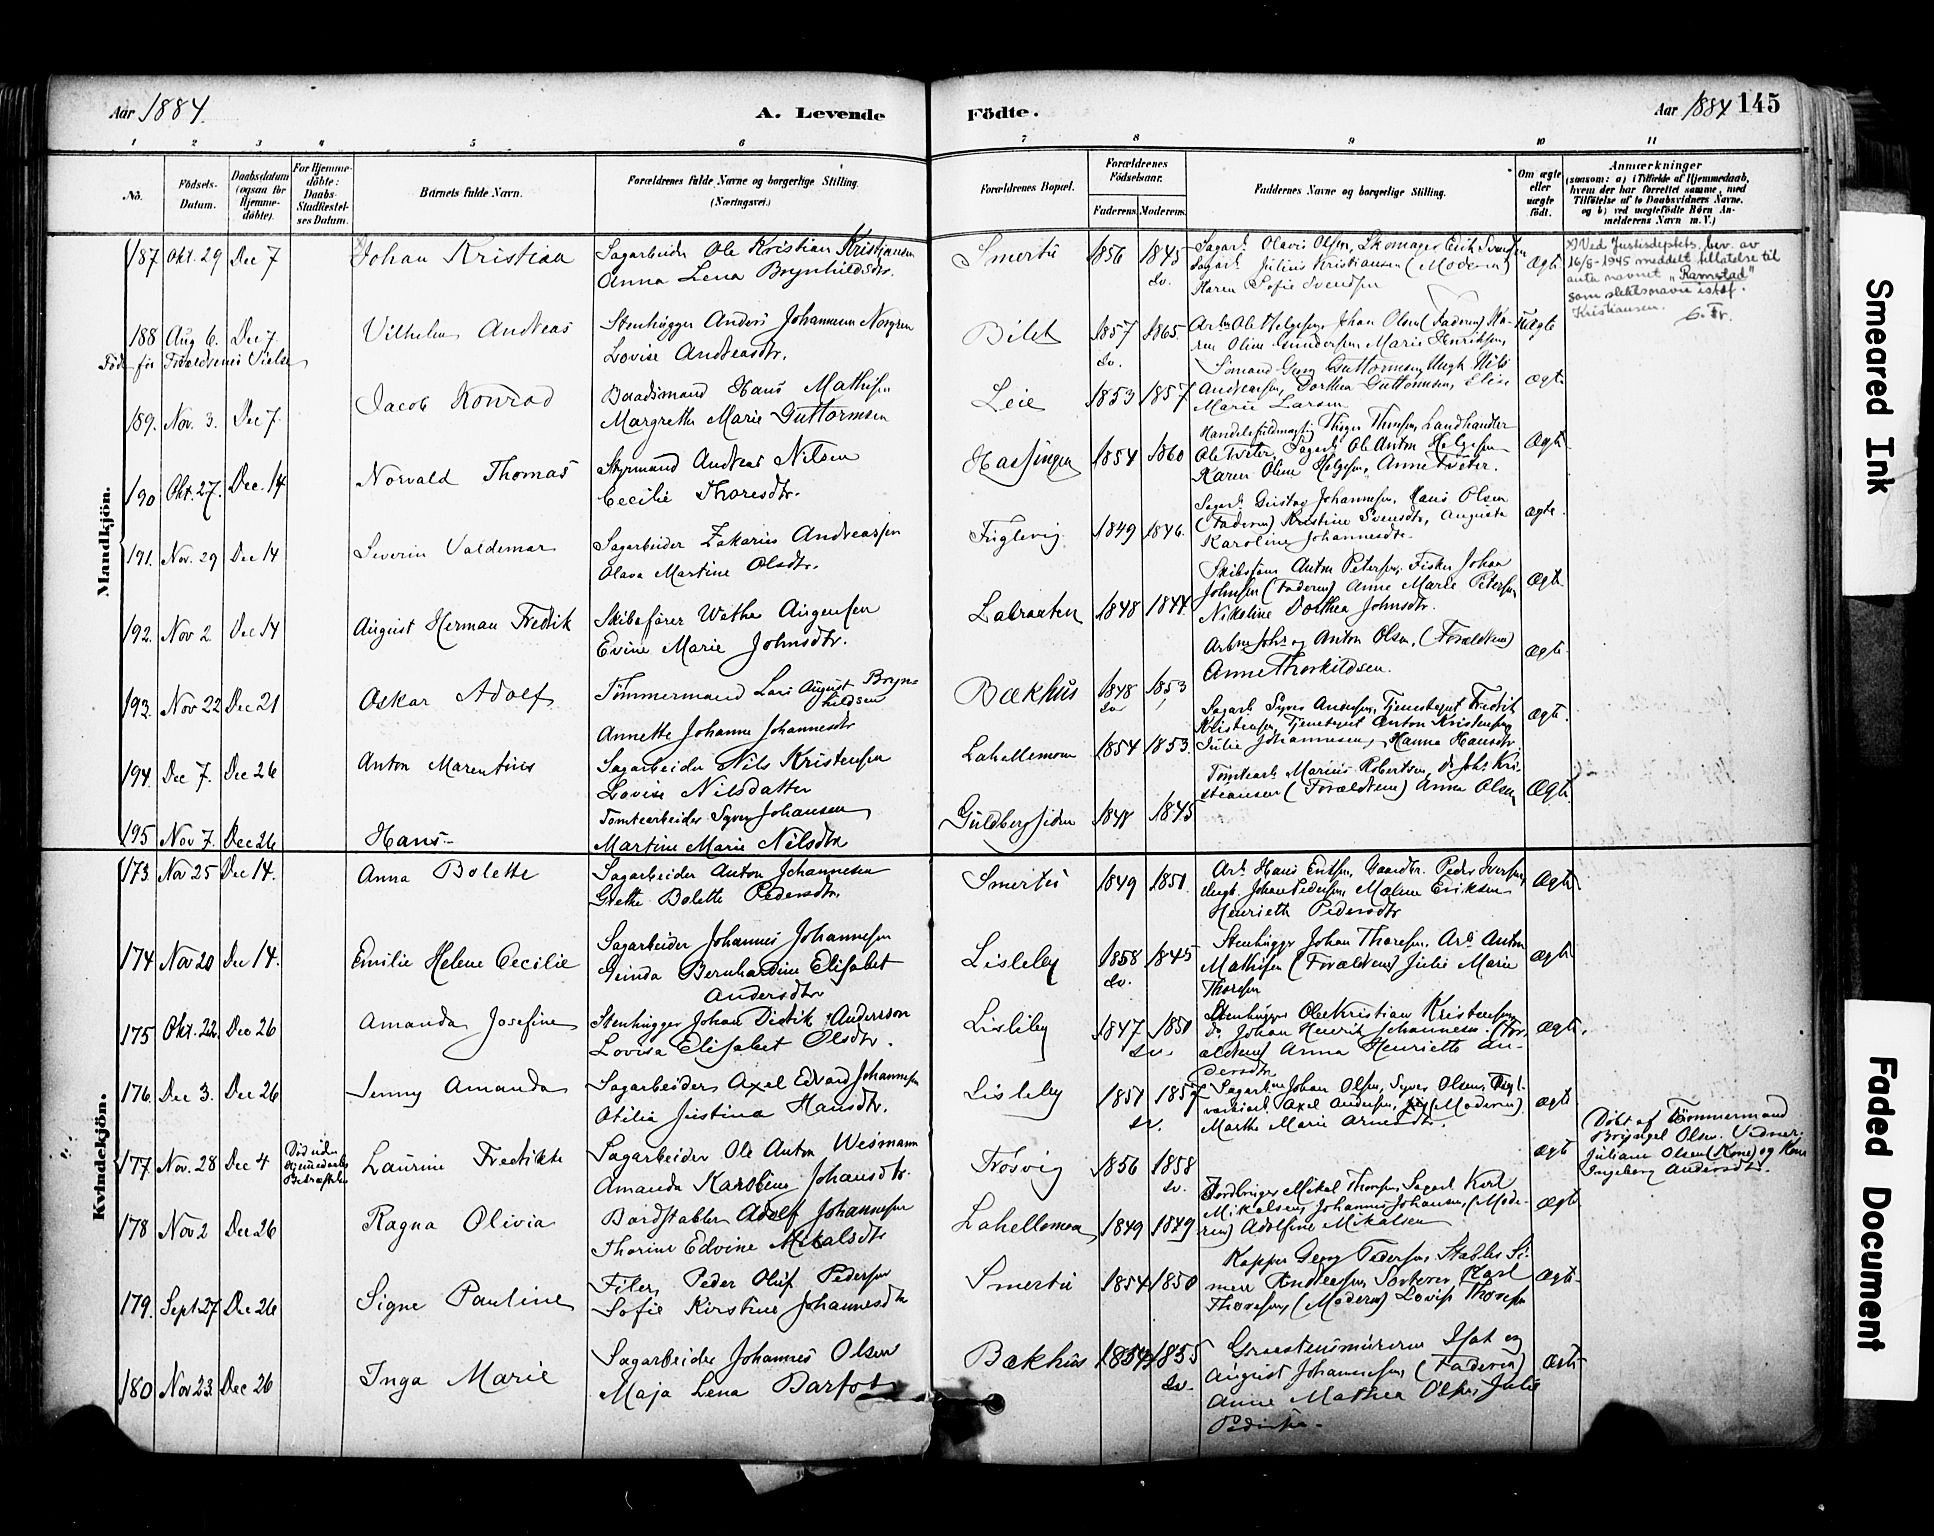 Aar 1884. A. Levende Födte. Aar 1884 145
1 2 3 4 5 6 7 8 9 10 11
No. Födsels-Datum. Daabsdatum (ogsaa for Hjemmedöbte). For Hjemmedöbte: Daabs-Stadfæstelses Datum. Barnets fulde Navn. Forældrenes fulde Navne og borgerlige Stilling. (Næringsvei.) Forældrenes Bopæl. Forældrenes Födselsaar. Faderens. Moderens. Faddernes Navne og borgerlige Stilling. Om ægte eller uægte födt. Anmærkninger
(saasom: a) i Tilfælde af Hjemmedaab, hvem der har forrettet samme, med Tilföielse af to Daabsvidners Navne, og b) ved uægtefödte Börn Anmelderens Navn m. V.)
Mandkjön.
187 Okt. 29 Dec 7 Johan Kristian Sagarbeider Ole Kristian Kristiansen Smertu 1856 1845 Sagarb. Olavis Olsen, Skomager Erik Svendsen Ægte
Anna Lena Brynhildsdtr. Sv. Sagarb. Julius Kristiansen (Moderen)
Karen Sofie Svendsen
x) Ved Justisdeptets bev. av
16/8-1945 meddelt tillatelse til
anta navnet "Ramstad"
som slektsnavn istdf.
Kristiansen.
188 Aug 6. Dec 7. Vilhelm Andreas Stenhugger Anders Johannesen Norgren Bilet 1857 1865. Arbm Ole Helgesen, Johan Olsen (Faderen) Ka- Ægte
Lovise Andreasdtr. Sv. ren Oline Gundersen, Marie Henriksen,
189. Nov. 3. Dec 7. Jacob Konrad Baadsmand Hans Mathisen Leie 1853 1857 Sömand Georg Guttormsen, Ungk Nils Ægte
Margrethe Marie Guttormsen Andreasen, Dorthea Guttormsen, Elise
Marie Larsen.
190 Okt. 27. Dec. 14 Norvald Thomas Styrmand Andreas Nilsen Hassingen 1854 1860 Handelsfuldmægt. Thoger Thorsen, Landhandler Ægte
Cecilie Thoresdtr. Ole Tveter, Sagarb. Ole Anton Helgesen
Karen Oline Helgesen, Anne Tveter.
191. Nov. 29 Dec 14 Severin Valdemar Sagarbeider Zakarias Andreassen Fuglevig 1849 1846. Sagarb. Gustav Johannesen, Hans Olsen Ægte.
Olava Martine Olsdtr. (Faderen) Kristine Svensdtr, Augusta
Karoline Johannesdtr.
192. Nov 2 Dec 14 August Herman Fredrik Skibsförer Labraaten 1848 1844. Skibsförer Anton Petersen, Fisker Johan Ægte
Evine Marie Johnsdtr. Johnsen (Faderen) Anne Marie Petersen
Nikoline Dorthea Johnsdtr.
193. Nov 22 Dec 21 Oskar Adolf Tömmermand Lars August Bryn- Bækhus 1848 1853 Arbm Johs og Anton Olsen, (Forældrene) Ægte
hildsen Sv. Anne Thorkildsen.
Annette Johanne Johannesdtr
194. Dec 7. Dec 26 Anton Marentius Sagarbeider Nils Kristensen Lahellemoen 1854 1853. Sagarb. Syver Andersen, Tjenestegut Fredrik Ægte.
Lovise Nilsdatter Kristensen, Tjenestegut Anton Kristensen,
Julie Johannesen, Hanna Hansdtr.
195 Nov 7. Dec 26 Hans Tomtearbeider Syver Johansen Guldbergsiden 1848 1845 Tomtearb. Marius Robertsen, do Johs Kri- Ægte
Martine Marie Nilsdtr stiansen (Forældrene) Anna Olsen
Kvindekjön.
173. Nov 25 Dec 14. Anna Bolette Sagarbeider Anton Johannesen Smertu 1849 1851. Arb. Hans Eriksen, Gaardbr. Peder Iversen, Ægte
Grethe Bolette Pedersdtr. Ungk. Johan Pedersen, Malene Eriksen
Henriette Pedersdtr
174 Nov 20 Dec 14. Emilie Helene Cecilie Sagarbeider Johannes Johannesen Lisleby 1858 1845 Stenhugger Johan Thoresen, Arb. Anton Ægte
Gunda Bernhardine Elisabet Sv. Mathisen (Forældrene) Julie Marie
Andersdtr Thoresen
175 Okt. 22. Dec 26 Amanda Josefine Stenhugger Johan Didrik Andersson Lisleby 1847 1850 Stenhugger Ole Kristian Kristensen, Ægte.
Lovisa Elisabet Olsdtr. Sv. do Johan Henrik Johannesen. (For-
ældrene) Anna Henriette An-
dersdtr
176. Dec 3. Dec 26 Jenny Amanda Sagarbeider Axel Edvard Johannesen Lisleby 1851 1857 Sagarbm Johan Olsen, Syver Olsen, Tegl- Ægte
Otilia Justina Hansdtr. Sv. værksarb. Axel Andersen, (Moderen)
Marthe Marie Arnesdtr.
177. Nov. 28 Dec 4 Död uden Hjemmedaabs Bekræftelse Laurine Fredrikke Sagarbeider Ole Anton Wesmann Trosvig 1856 1858 Ægte
Amanda Karoline Johansdtr. Sv.
Döbt af Tömmermand
Olsen. Vidner:
Juliane Olsen (Kone) og Kone
Ingeborg Andersdtr.
178 Nov 2 Dec 26 Ragna Olivia Bordstabler Adolf Johannesen Lahellemoen 1849 1849 Jordbruger Mikal Thoresen, Sagarb. Karl Ægte
Thorine Edvine Mikalsdtr Mikalsen, Johannes Johansen, (Mode-
ren) Adolfine Mikalsen
179. Sept 27 Dec 26 Signe Pauline Filer Peder Oluf Pedersen Smertu 1854 1850 Kapper Georg Pedersen, Stabler Si- Ægte
Sofie Kirstine Johannesdtr men Andreasen, Sorterer Karl
Thoresen, (Moderen) Lovise Thoresen
180 Nov 23 Dec 26 Inga Marie Sagarbeider Johannes Olsen Bækhus 1854 1855 Graastensmurerne Isak og Ægte
Maja Lena Barfot Sv. August Johannesen (Faderen)
Anne Mathea Olsen, Julie
Pedersen.
Smeared Ink
Faded Document